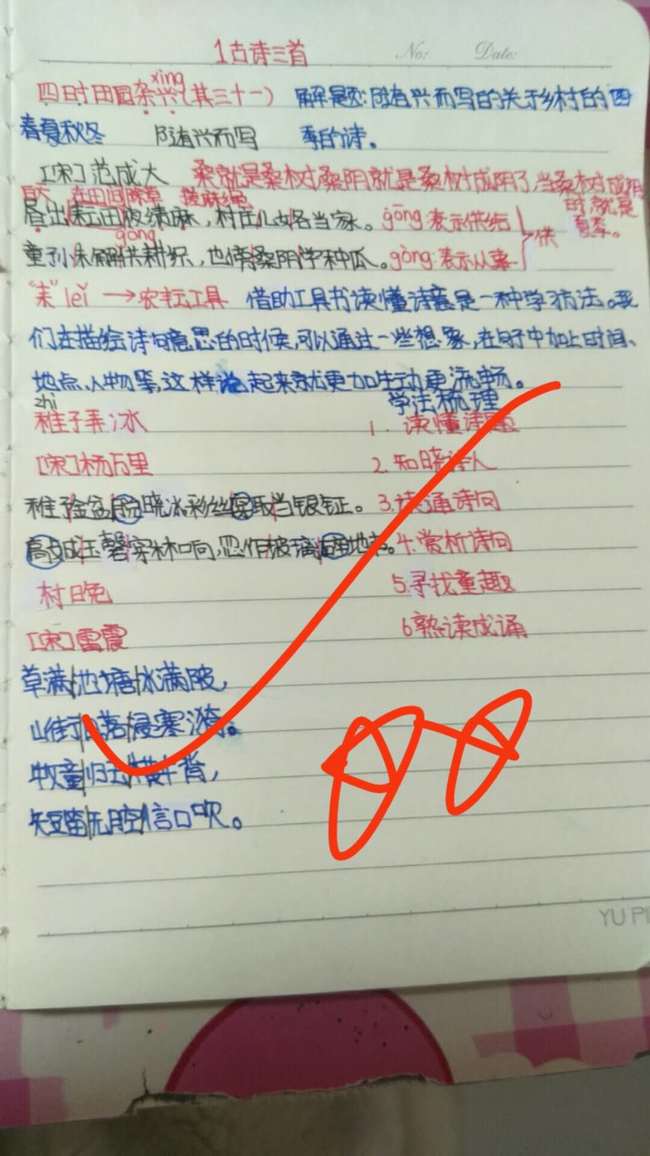 1古诗三首
No: Date:
xìng
四时田园杂兴(其三十一) 解题:随有兴而写的关于乡村的四
春夏秋冬 随有兴而写 季的诗。
[宋]范成大 桑就是桑树桑阴就是桑树成阴了,当桑树成阴
时就是
白天 在田间除草 搓麻绳 夏季。
昼出耘田夜绩麻,村庄儿女各当家。gōng表示供给
供
gòng
童孙未解供耕织,也傍桑阴学种瓜。gòng表示从事
"耒"lěi→农耘工具 借助工具书读懂诗意是一种学习方法。我
们在描绘诗句意思的时候,可以通过一些想象,在句子中加上时间、
地点、人物等,这样说起来就更加生动更流畅。
zhì 学法梳理
稚子弄冰 1.读懂诗题
[宋]杨万里 2.知晓诗人
稚子金盆脱晓冰,彩丝穿取当银钲。3.读通诗句
敲成玉磬穿林响,忽作玻璃碎地声。4.赏析诗句
村晚 5.寻找童趣
[宋]雷震 6熟读成诵
草满池塘水满陂,
山衔落日浸寒漪。
牧童归去横牛背,
短笛无腔信口吹。
YU PI